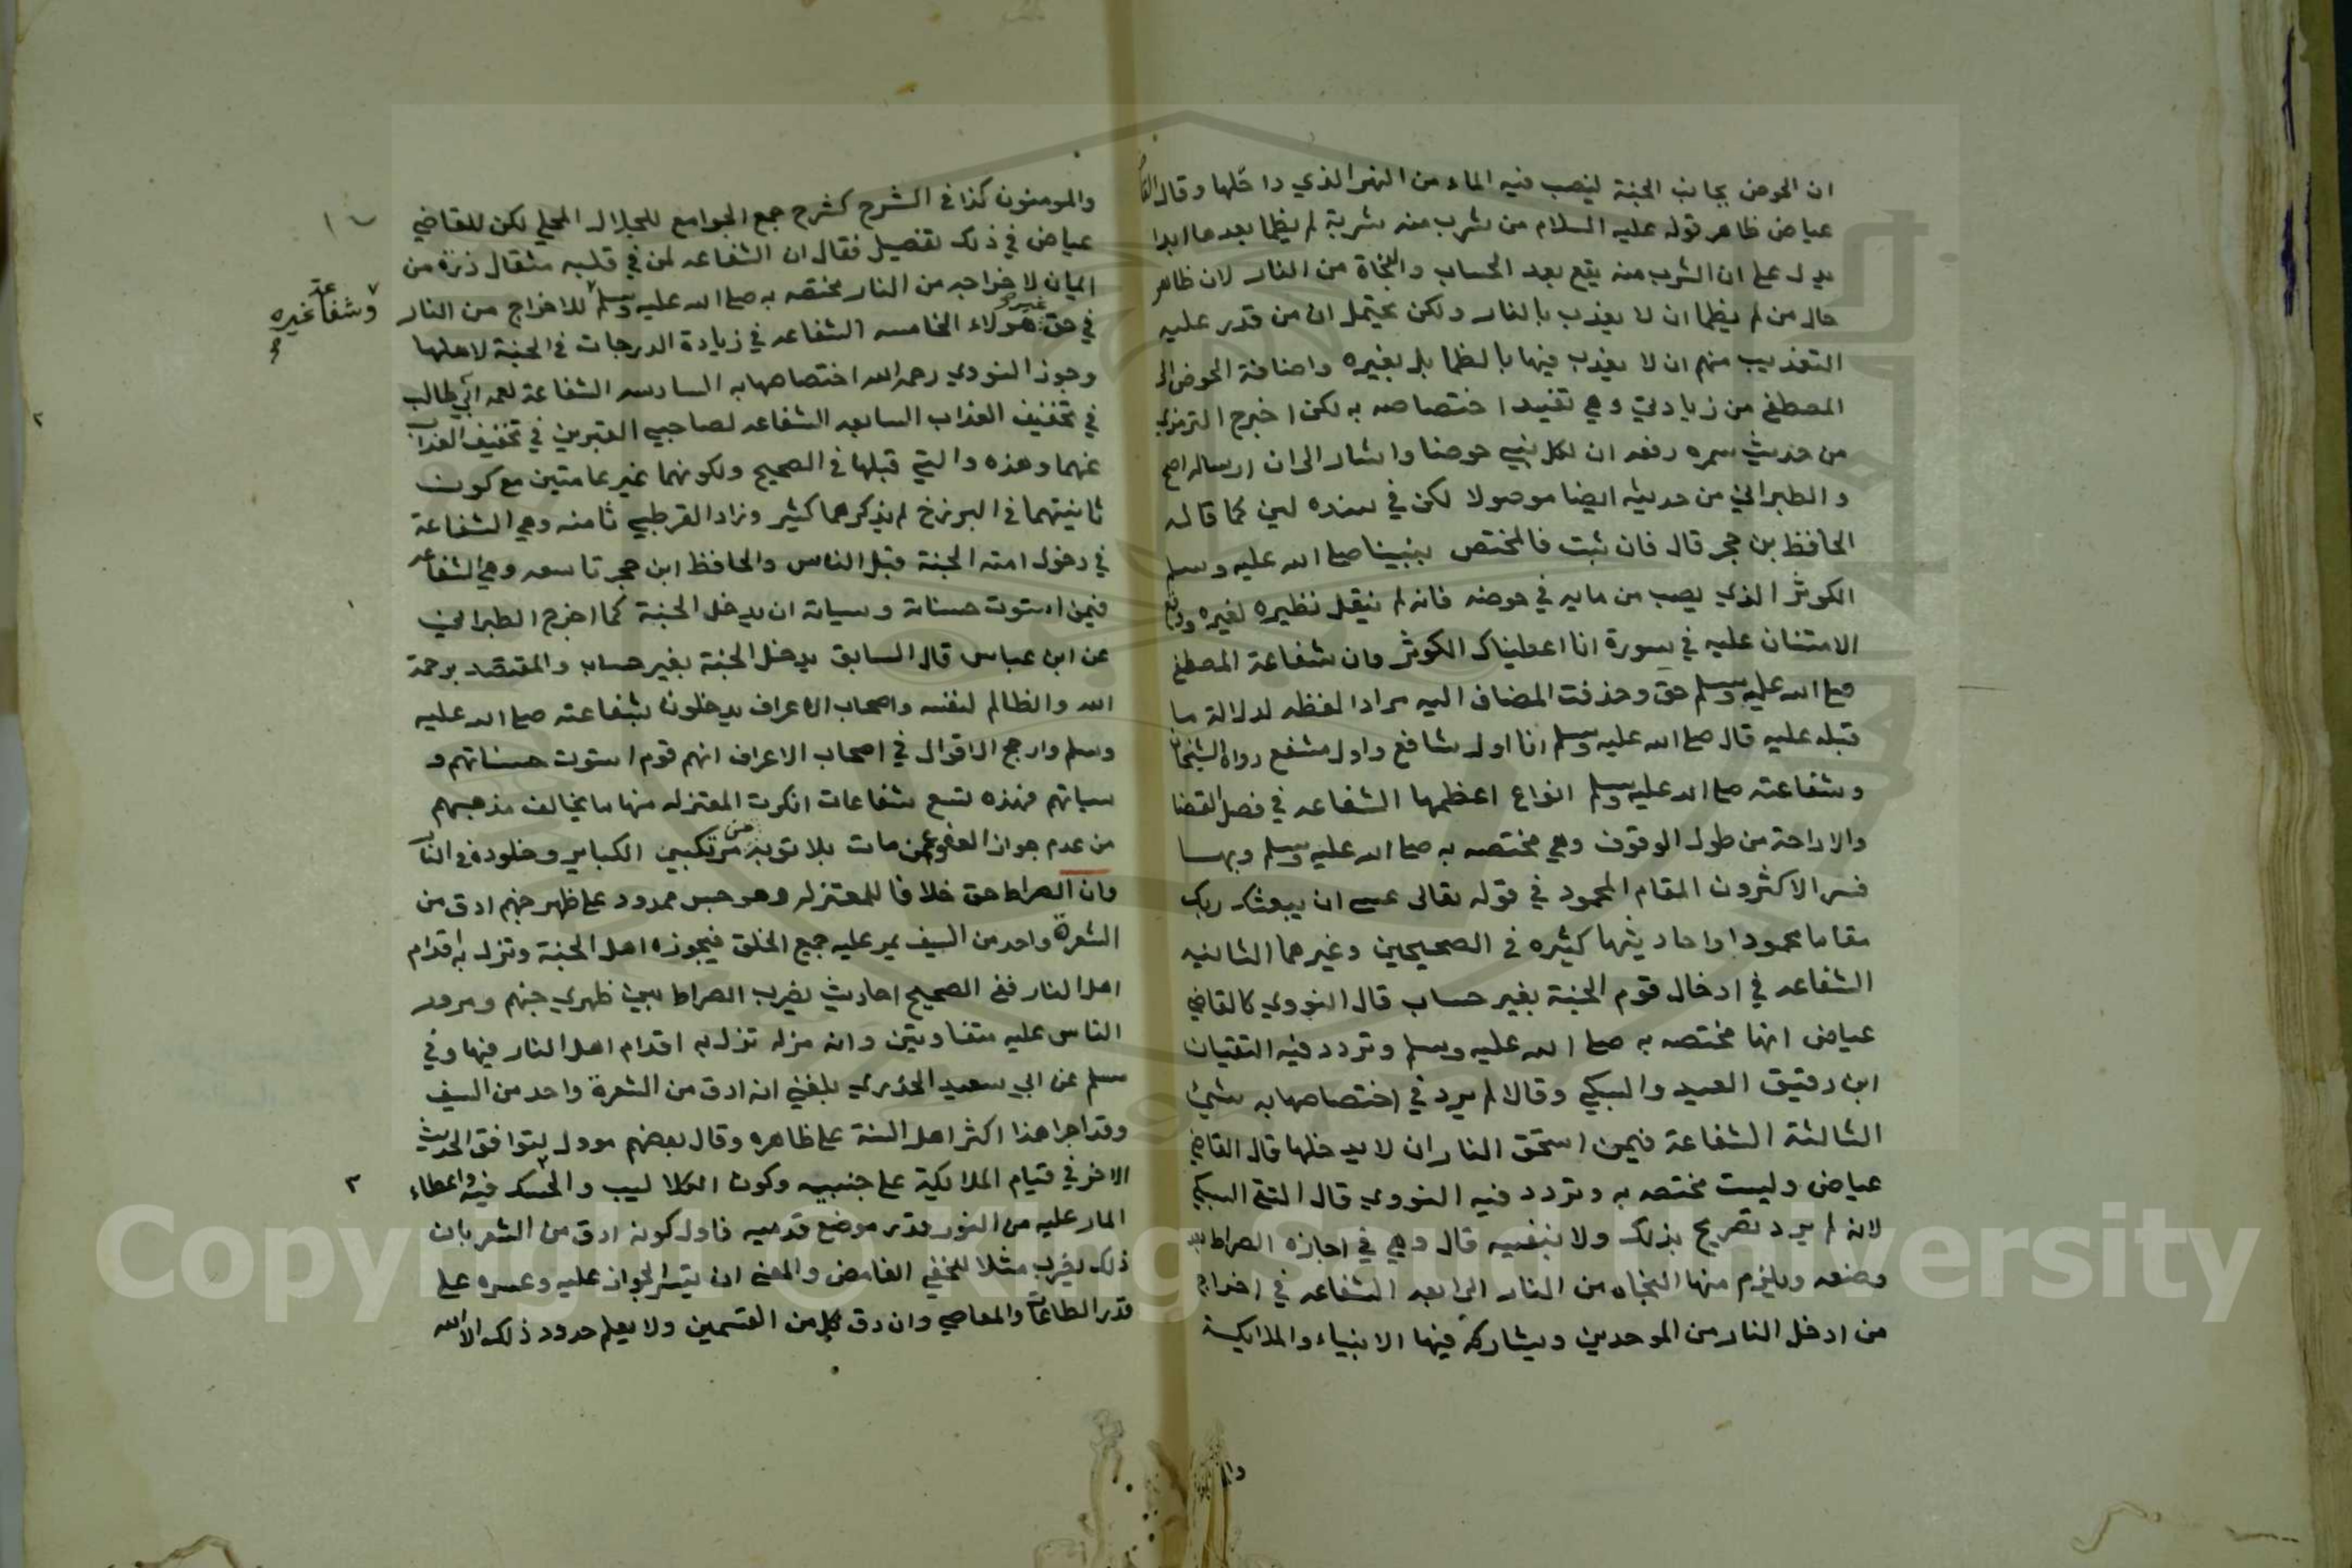 ان الحوض بجانب الجنة ليصب فيه الماء من النهر الذي داخلها وقال القا
عياض ظاهر قوله عليه السلام من شرب منه شربة لم يظما بعدها ابدا
يدل على ان الشرب منه يقع بعد الحساب والنجاة من النار لان ظاهر
حال من لم يظما ان لا يعذب بالنار ولكن يحتمل ان من قدر عليه
التعذيب منهم ان لا يعذب فيها بالظما بل بغيره واضافة الحوض الى
المصطفى من زيادتي وهي تفيد اختصاصه به لكن اخرج الترمذي
من حديث سمره رفعه ان لكل نبي حوضا واشار الى ان ارساله اصح
والطبراني من حديثه ايضا موصولا لكن في سنده لين كما قاله
الحافظ بن حجر قال فان ثبت فالمختص بنبينا صلى الله عليه وسلم
الكوثر الذي يصب من مايه في حوضه فانه لم ينقل نظيره لغيره ووقع
الامتنان عليه في سورة انا اعطيناك الكوثر وان شفاعة المصطفى
صلى الله عليه وسلم حق وحذفت المضاف اليه مرادا لفظه لدلالة ما
قبله عليه قال صلى الله عليه وسلم انا اول شافع واول مشفع رواه الشيخان
وشفاعته صلى الله عليه وسلم انواع اعظمها الشفاعه في فصل القضا
والاراحة من طول الوقوف وهي مختصه به صلى الله عليه وسلم وبها
فسر الاكثرون المقام المحمود في قوله تعالى عسى ان يبعثك ربك
مقاما محمودا واحاديثها كثيره في الصحيحين وغيرهما الثانيه
الشفاعه في ادخال قوم الجنة بغير حساب قال النووي كالقاضي
عياض انها مختصه به صلى الله عليه وسلم وتردد فيه التقيان
ابن دقيق العيد والسبكي وقالا لم يرد في اختصاصها به شيئ
الثالثة الشفاعة فيمن استحق النار ان لا يدخلها قال القاضي
عياض وليست مختصه به وتردد فيه النووي قال التقي السبكي
لانه لم يرد تصريح بذلك ولا بنفيه قال وهي في اجازه الصراط بعد
وضعه ويلزم منها النجاه من النار الرابعه الشفاعه في اخراج
من ادخل النار من الموحدين ويشاركه فيها الانبياء والملايكة
والمومنون كذا في الشرح كشرح جمع الجوامع للجلال المحلي لكن للقاضي
عياض في ذلك تفصيل فقال ان الشفاعه لمن في قلبه مثقال ذرة من
ايمان لاخراجه من النار مختصه به صلى الله عليه وسلم للاخراج من النار
وشفاعة غيره
في حق غير هولاء الخامسه الشفاعه في زيادة الدرجات في الجنة لاهلها
وجوز النووي رحمه الله اختصاصها به السادسه الشفاعة لعمه ابي طالب
في تخفيف العذاب السابعه الشفاعه لصاحبي القبرين في تخفيف العذاب
عنهما وهذه والتي قبلها في الصحيح ولكونهما غير عامتين مع كون
ثانيتهما في البرزخ لم يذكرهما كثير وزاد القرطبي ثامنه وهي الشفاعة
في دخول امته الجنة قبل الناس والحافظ ابن حجر تاسعه وهي الشفاعه
فيمن استوت حسناته وسياته ان يدخل الجنة كما اخرج الطبراني
عن ابن عباس قال السابق يدخل الجنة بغير حساب والمقتصد برحمة
الله والظالم لنفسه واصحاب الاعراف يدخلون بشفاعته صلى الله عليه
وسلم وارجح الاقوال في اصحاب الاعراف انهم قوم استوت حسناتهم و
سياتهم فهذه تسع شفاعات انكرت المعتزله منها ما يخالف مذهبهم
من عدم جواز العفو عمن مات بلا توبة من مرتكبي الكباير وخلوده في النار
وان الصراط حق خلافا للمعتزله وهو جسر ممدود على ظهر جهنم ادق من
الشعرة واحد من السيف يمر عليه جميع الخلق فيجوزه اهل الجنة وتزل به اقدام
اهل النار ففي الصحيح احاديث يضرب الصراط بين ظهري جهنم ومرور
الناس عليه متفاوتين وانه مزلة تزل به اقدام اهل النار فيها وفي
مسلم عن ابي سعيد الخدري بلغني انه ادق من الشعرة واحد من السيف
وقد اجرا هذا اكثر اهل السنة على ظاهره وقال بعضهم موول ليتوافق الحديث
الاخر في قيام الملايكة على جنبيه وكون الكلاليب والحسك فيه واعطاء
المار عليه من النور قدر موضع قدميه فاول كونه ادق من الشعر بان
ذلك يضرب مثلا للخفي الغامض والمعنى ان يسر الجواز عليه وعسره على
قدر الطاعات والمعاصي وان دق كل من القسمين ولا يعلم حدود ذلك الا الله
Copyright © King Saud University